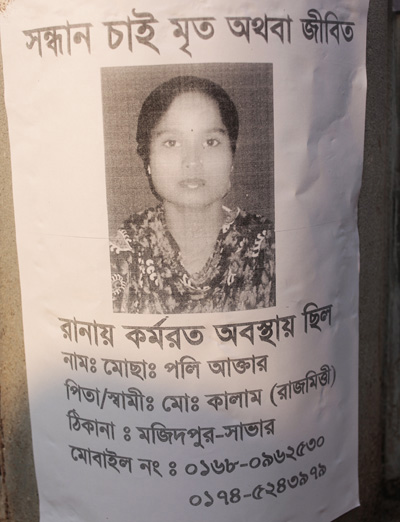 সন্ধান চাই মৃত অথবা জীবিত
রানায় কর্মরত অবস্থায় ছিল
নামঃ মোছাঃ পলি আক্তার
পিতা/স্বামীঃ মোঃ কালাম (রাজমিস্ত্রী)
ঠিকানা : মজিদপুর-সাভার
মোবাইল নং : ০১৬৮-০৯৬২৫৩০
০১৭৪-৫২৪৩৯৭৯